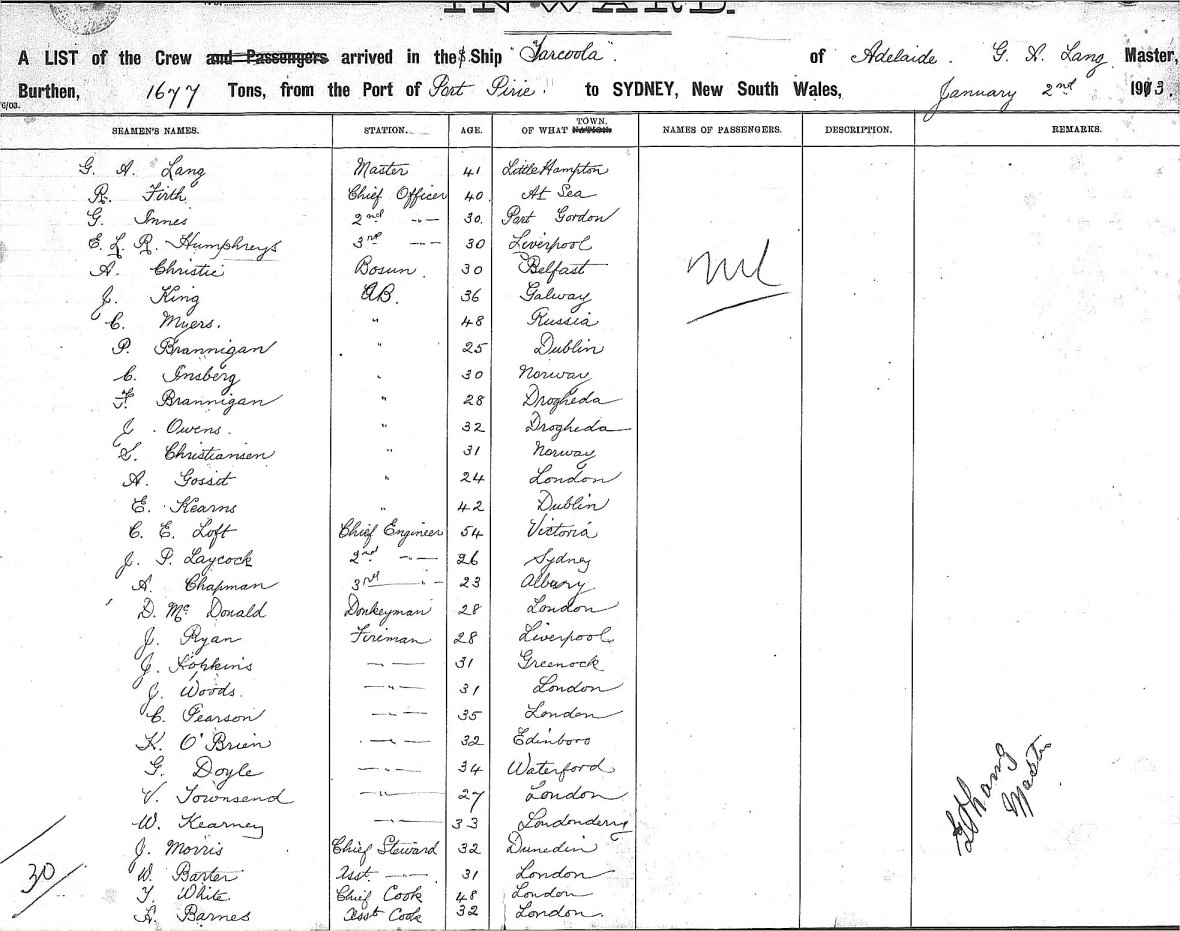 INWARD.
A LIST of the Crew and Passengers arrived in the S Ship "Tarcoola" of Adelaide. G. A. Lang Master,
Burthen, 1677 Tons, from the Port of Port Pirie. to SYDNEY, New South Wales, January 2nd 1913.
6/03.
SEAMEN'S NAMES. STATION. AGE. OF WHAT NATION TOWN. NAMES OF PASSENGERS. DESCRIPTION. REMARKS.
G. A. Lang Master 41 Little Hampton
R. Firth Chief Officer 40. At Sea
G. Innes 2nd -"- 30. Port Gordon
E. L. R. Humphreys 3rd -"- 30 Liverpool
A. Christie Bosun. 30 Belfast
J. King AB. 36 Galway
C. Myers. " 48 Russia
P. Brannigan " 25 Dublin
C. Insberg " 30 Norway
F. Brannigan " 28 Drogheda
J. Owens. " 32 Drogheda
S. Christiansen " 31 Norway
A. Gossit " 24 London
E. Kearns " 42 Dublin
C. E. Loft Chief Engineer 54 Victoria
J. P. Laycock 2nd -"- 26 Sydney
A. Chapman 3rd -"- 23 Albury
D. McDonald Donkeyman 28 London
J. Ryan Fireman 28 Liverpool
J. Hopkins -"- 31 Greenock
J. Woods. -"- 31 London
C. Pearson -"- 35 London
K. O'Brien -"- 32 Edinboro
G. Doyle -"- 34 Waterford
V. Townsend -"- 27 London
W. Kearney -"- 33 Londonderry
J. Morris Chief Steward 32 Dunedin
W. Barter Asst. -"- 31 London
T. White. Chief Cook 48 London
H. Barnes Asst Cook 32 London.
nil
30
Master